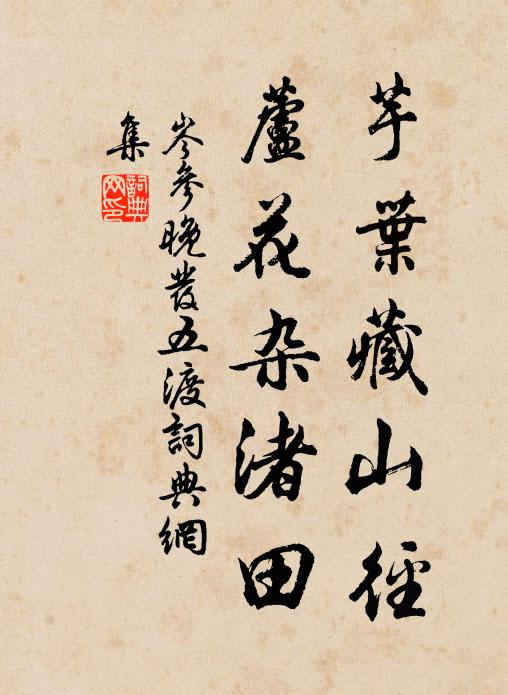 芋葉藏山徑
蘆花杂渚田
岑參晚發五渡詞典網
集
詞典
网印